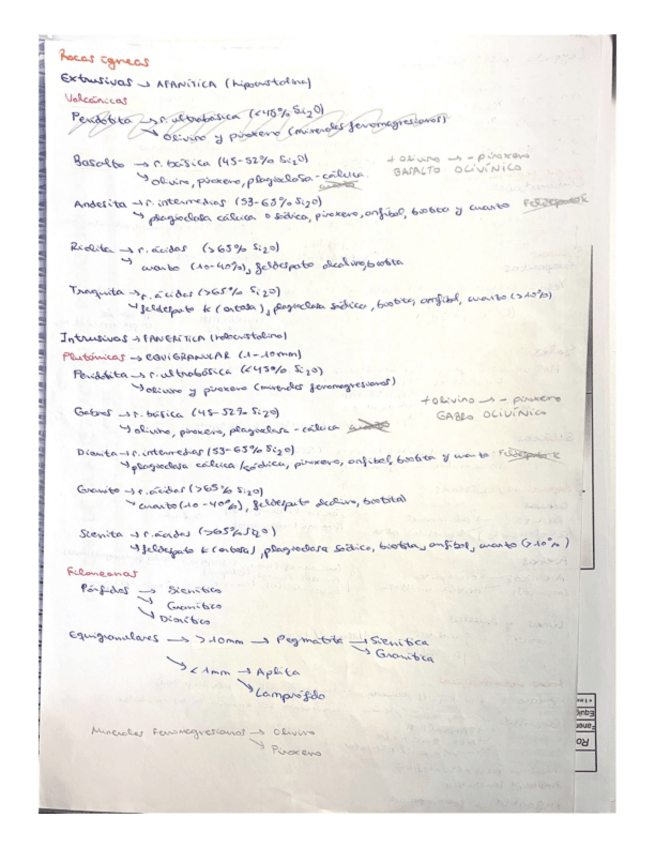 Rocas ígneas
Extrusivas → AFANÍTICA (hipocristalina)
Volcánicas
Peridotita → r. ultrabásica (<45% Si2O)
↳ olivino y piroxeno (minerales ferromagnesianos)
Basalto → r. básica (45-52% Si2O)
↳ olivino, piroxeno, plagioclasa-cálcica
+ olivino → - piroxeno
BASALTO OLIVÍNICO
Andesita → r. intermedias (53-65% Si2O)
↳ plagioclasa cálcica o sódica, piroxeno, anfíbol, biotita y cuarzo
Riolita → r. ácidas (>65% Si2O)
↳ cuarzo (10-40%), feldespato alcalino, biotita
Traquita → r. ácidas (>65% Si2O)
↳ feldespato K (ortosa), plagioclasa sódica, biotita, anfíbol, cuarzo (>10%)
Intrusivas → FANERÍTICA (holocristalina)
Plutónicas → EQUIGRANULAR (1-10mm)
Peridotita → r. ultrabásica (<45% Si2O)
↳ olivino y piroxeno (minerales ferromagnesianos)
Gabros → r. básica (45-52% Si2O)
↳ olivino, piroxeno, plagioclasa-cálcica
+ olivino → - piroxeno
GABRO OLIVÍNICO
Diorita → r. intermedias (53-65% Si2O)
↳ plagioclasa cálcica/sódica, piroxeno, anfíbol, biotita y cuarzo
Granito → r. ácidas (>65% Si2O)
↳ cuarzo (10-40%), feldespato alcalino, biotita)
Sienita → r. ácidas (>65% Si2O)
↳ feldespato K (ortosa), plagioclasa sódica, biotita, anfíbol, cuarzo (>10%)
Filoneanas
Pórfidos → Sienítico
↘ Granítico
↘ Diorítico
Equigranulares → >10mm → Pegmatita → Sienítica
↘ Granítica
↘ <1mm → Aplita
↘ Lamprófido
Minerales ferromagnesianos → Olivino
↘ Piroxeno